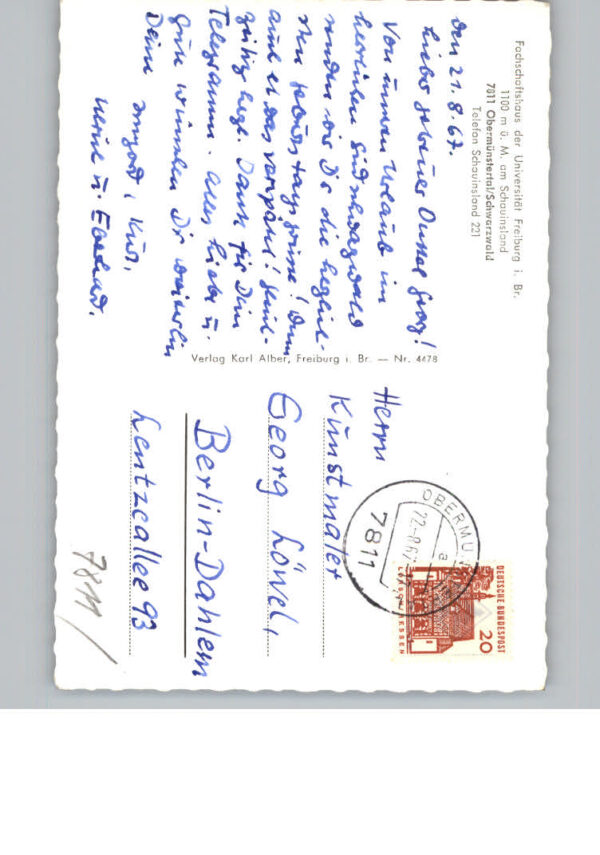 Fachschaftshaus der Universität Freiburg i. Br.
1100 m ü. M. am Schauinsland
7811 Obermünstertal/Schwarzwald
Telefon Schauinsland 221
den 21.8.67.
Lieber, Onkel Georg!
Von unserem Urlaub im
herrlichen Südschwarzwald
senden wir Dir die herzlich-
sten Geburtstagsgrüsse!
auch etwas verspätet!
Dank für Dein
Telegramm. Alles Liebe u.
Gute wünschen Dir weiterhin
Deine
Kurt,
u. Eberhard.
Verlag Karl Alber, Freiburg i. Br. — Nr. 4478
Herrn
Kunstmaler
Georg Löwel,
Berlin-Dahlem
Lentzeallee 93
OBERMÜ
a
22.-8.67
7811
DEUTSCHE BUNDESPOST
20
LORSCH/HESSEN
7811/